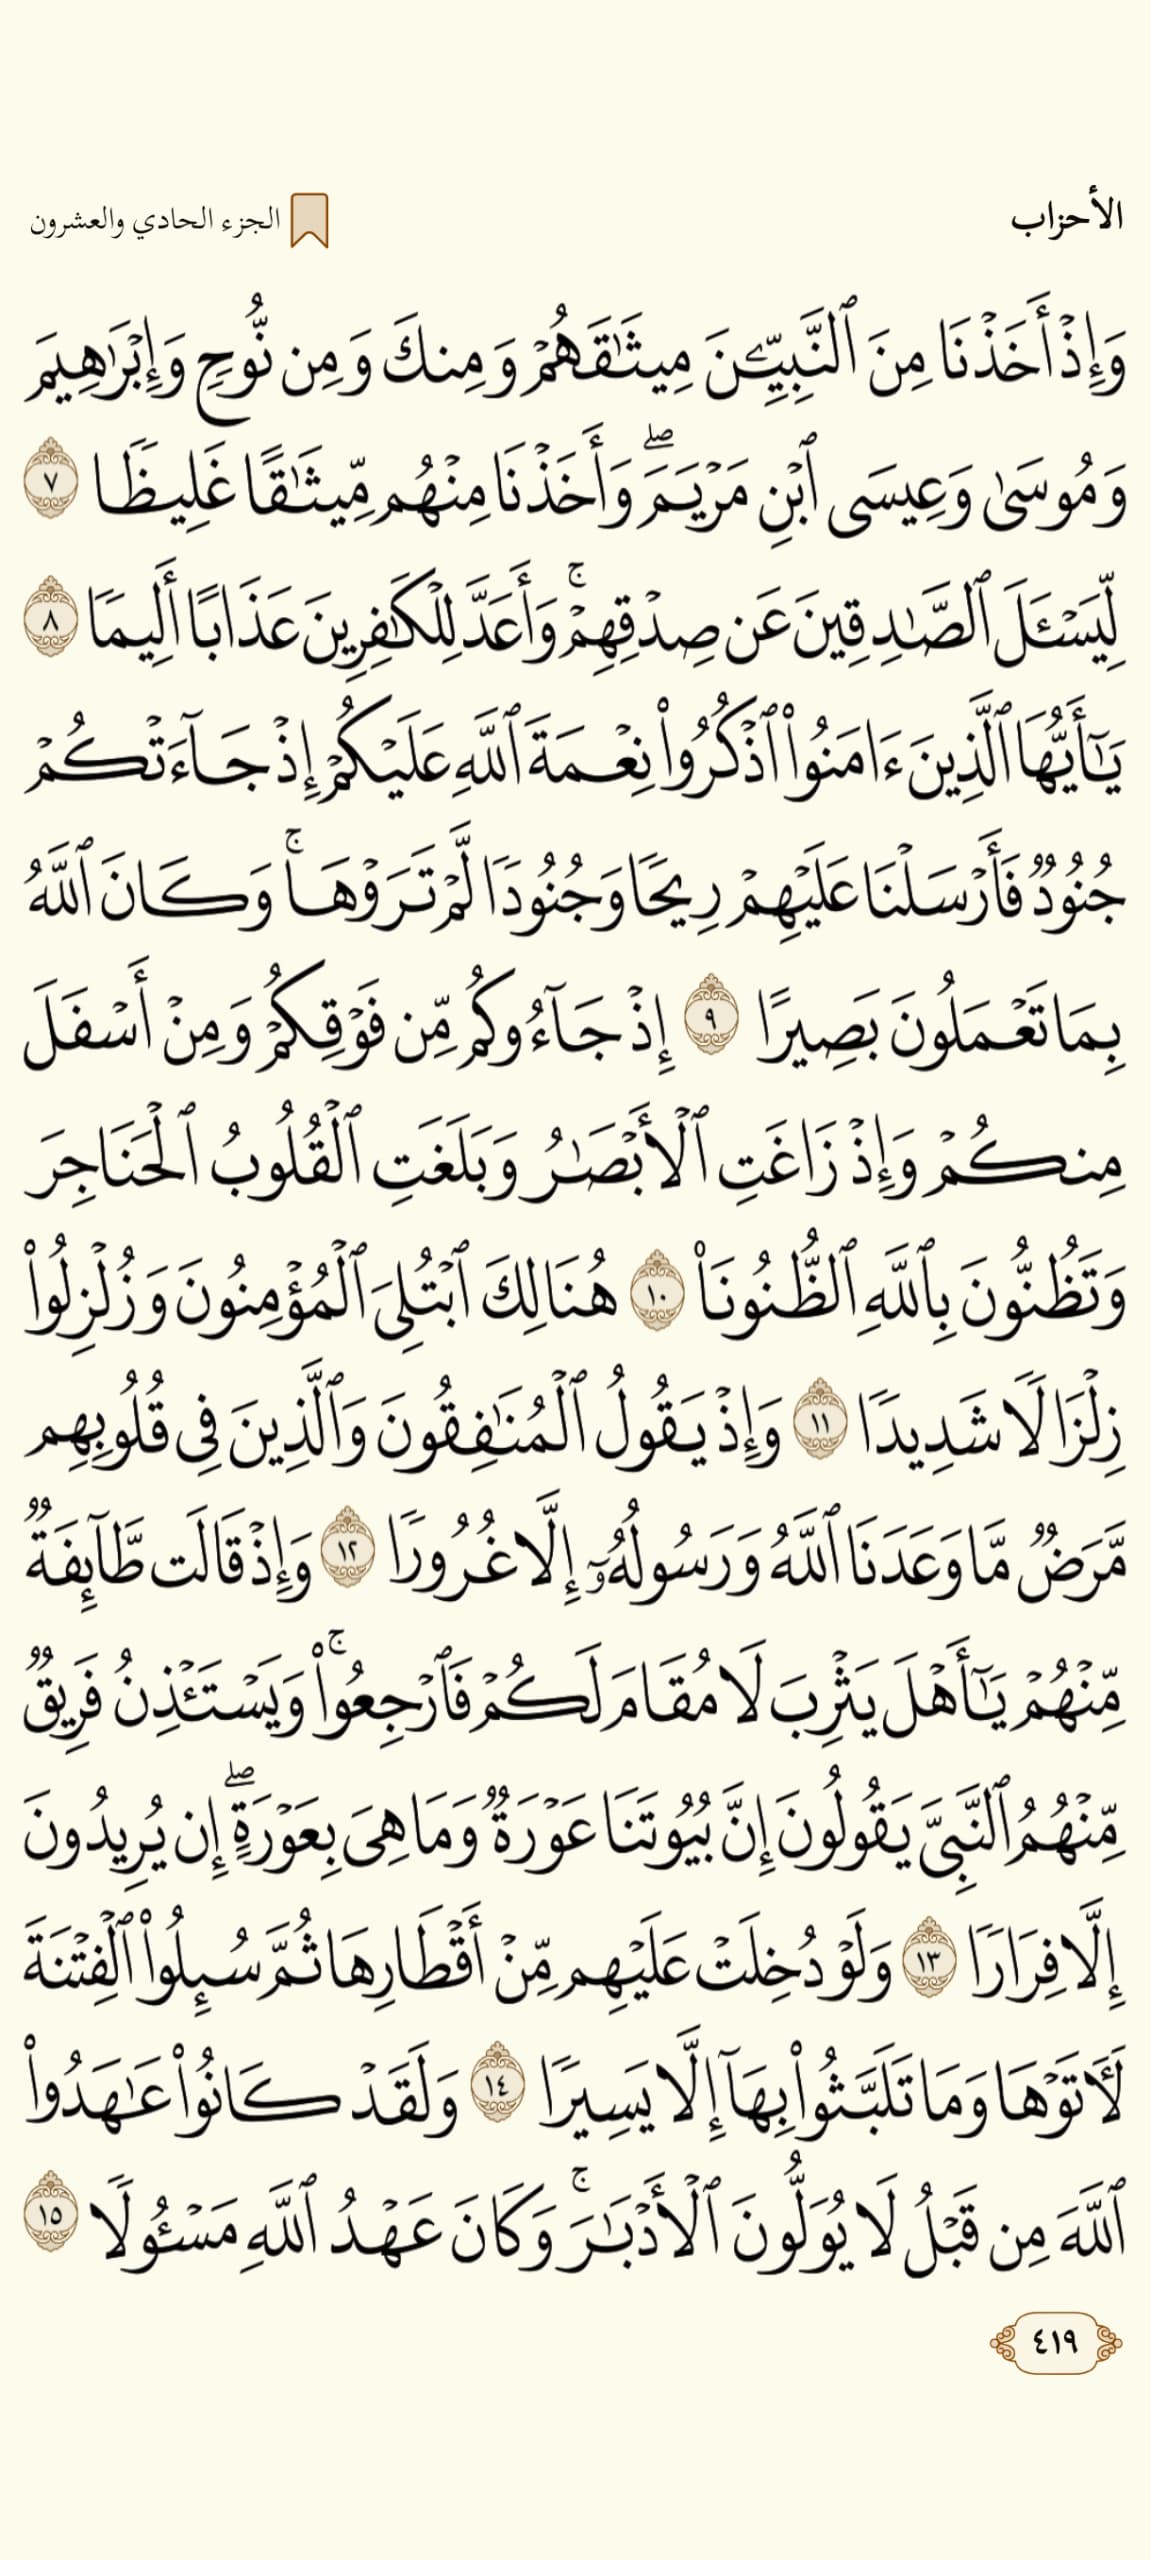 الأحزاب
الجزء الحادي والعشرون
وَإِذْ أَخَذْنَا مِنَ ٱلنَّبِيِّـۧنَ مِيثَٰقَهُمْ وَمِنكَ وَمِن نُّوحٍ وَإِبْرَٰهِيمَ
وَمُوسَىٰ وَعِيسَى ٱبْنِ مَرْيَمَ ۖ وَأَخَذْنَا مِنْهُم مِّيثَٰقًا غَلِيظًا ٧
لِّيَسْـَٔلَ ٱلصَّٰدِقِينَ عَن صِدْقِهِمْ ۚ وَأَعَدَّ لِلْكَٰفِرِينَ عَذَابًا أَلِيمًا ٨
يَٰٓأَيُّهَا ٱلَّذِينَ ءَامَنُوا۟ ٱذْكُرُوا۟ نِعْمَةَ ٱللَّهِ عَلَيْكُمْ إِذْ جَآءَتْكُمْ
جُنُودٌ فَأَرْسَلْنَا عَلَيْهِمْ رِيحًا وَجُنُودًا لَّمْ تَرَوْهَا ۚ وَكَانَ ٱللَّهُ
بِمَا تَعْمَلُونَ بَصِيرًا ٩ إِذْ جَآءُوكُم مِّن فَوْقِكُمْ وَمِنْ أَسْفَلَ
مِنكُمْ وَإِذْ زَاغَتِ ٱلْأَبْصَٰرُ وَبَلَغَتِ ٱلْقُلُوبُ ٱلْحَنَاجِرَ
وَتَظُنُّونَ بِٱللَّهِ ٱلظُّنُونَا۠ ١٠ هُنَالِكَ ٱبْتُلِىَ ٱلْمُؤْمِنُونَ وَزُلْزِلُوا۟
زِلْزَالًا شَدِيدًا ١١ وَإِذْ يَقُولُ ٱلْمُنَٰفِقُونَ وَٱلَّذِينَ فِى قُلُوبِهِم
مَّرَضٌ مَّا وَعَدَنَا ٱللَّهُ وَرَسُولُهُۥٓ إِلَّا غُرُورًا ١٢ وَإِذْ قَالَت طَّآئِفَةٌ
مِّنْهُمْ يَٰٓأَهْلَ يَثْرِبَ لَا مُقَامَ لَكُمْ فَٱرْجِعُوا۟ ۚ وَيَسْتَـْٔذِنُ فَرِيقٌ
مِّنْهُمُ ٱلنَّبِىَّ يَقُولُونَ إِنَّ بُيُوتَنَا عَوْرَةٌ وَمَا هِىَ بِعَوْرَةٍ ۖ إِن يُرِيدُونَ
إِلَّا فِرَارًا ١٣ وَلَوْ دُخِلَتْ عَلَيْهِم مِّنْ أَقْطَارِهَا ثُمَّ سُئِلُوا۟ ٱلْفِتْنَةَ
لَـَٔاتَوْهَا وَمَا تَلَبَّثُوا۟ بِهَآ إِلَّا يَسِيرًا ١٤ وَلَقَدْ كَانُوا۟ عَٰهَدُوا۟
ٱللَّهَ مِن قَبْلُ لَا يُوَلُّونَ ٱلْأَدْبَٰرَ ۚ وَكَانَ عَهْدُ ٱللَّهِ مَسْـُٔولًا ١٥
٤١٩